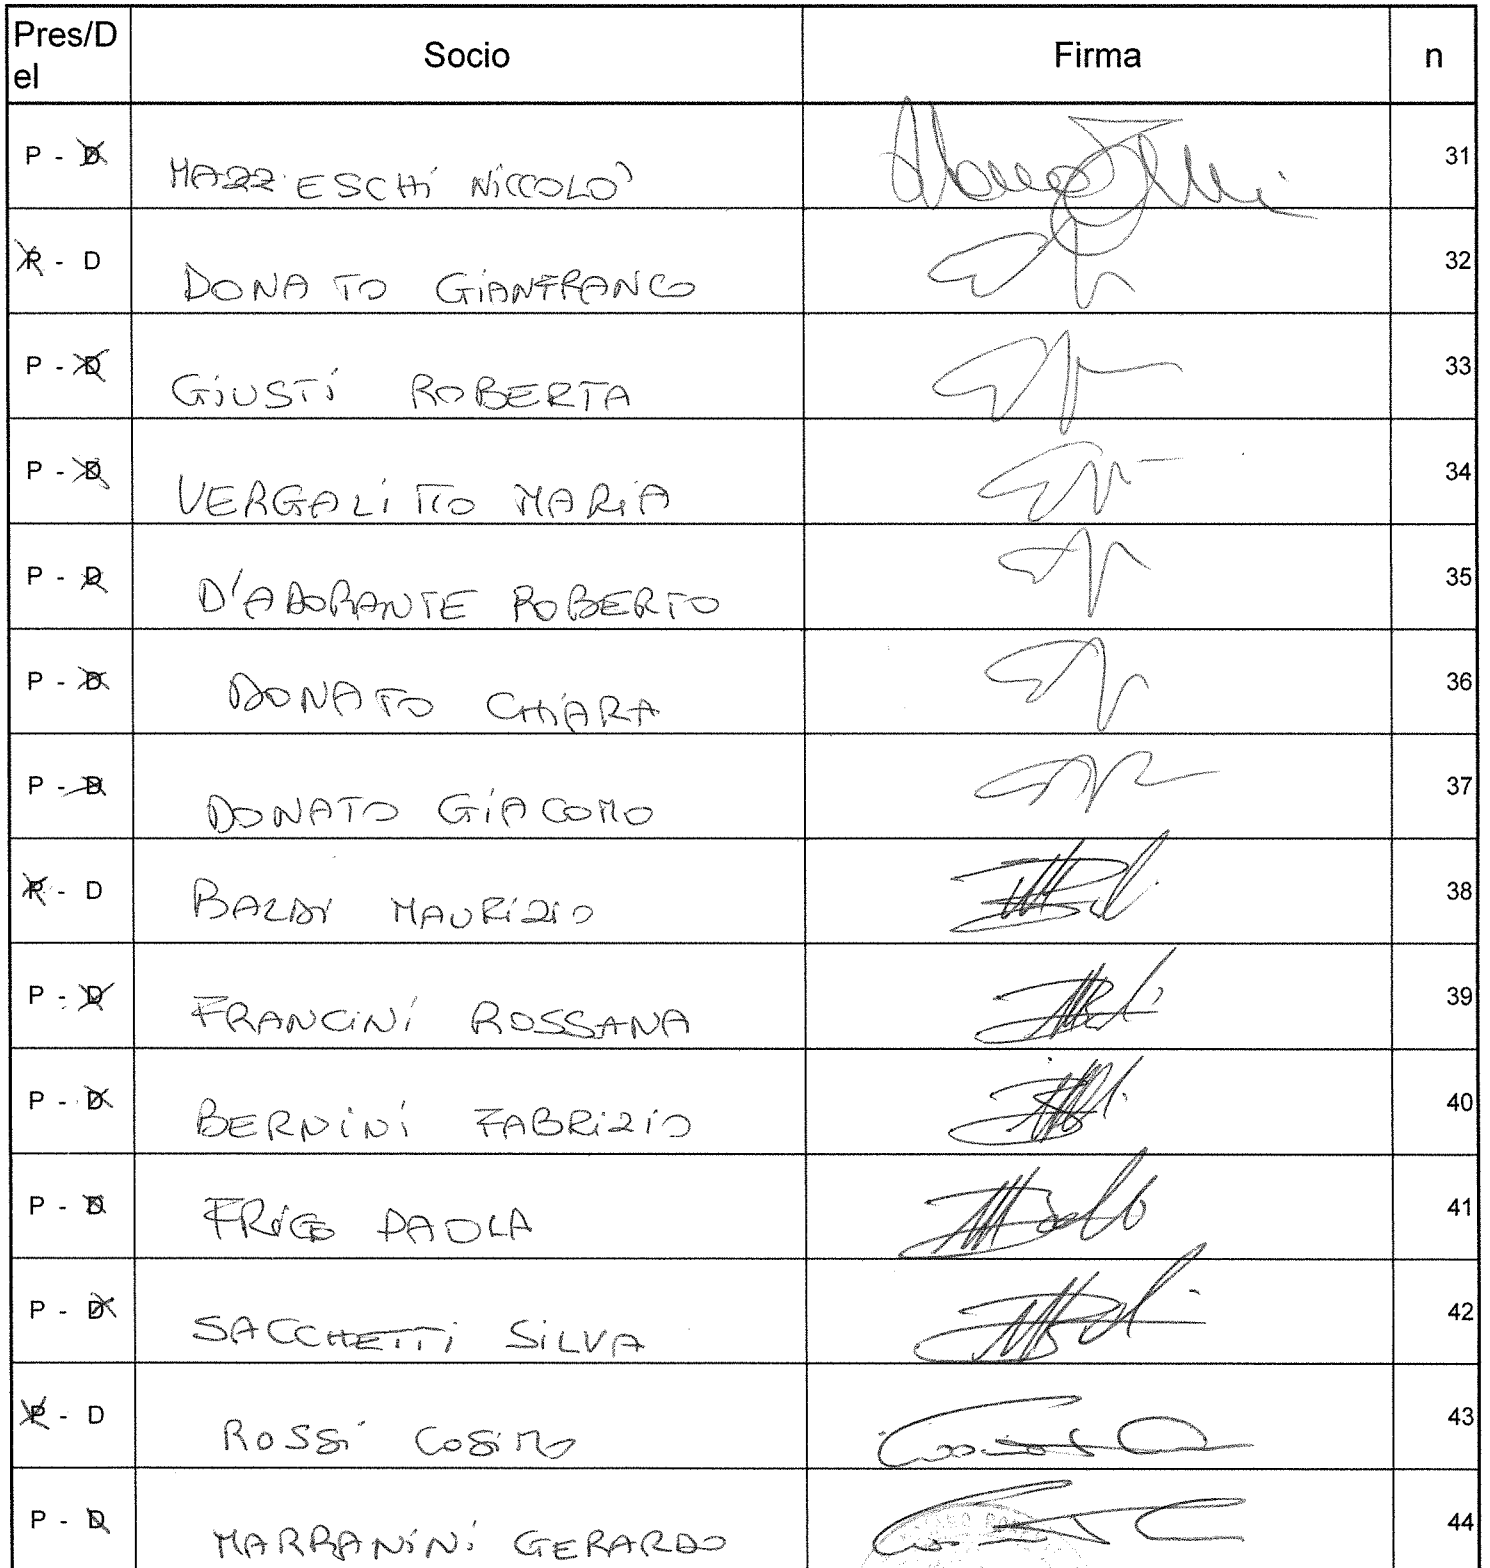 Pres/D
el Socio Firma n
P - D MAZZESCHI NICCOLO' 31
P - D DONATO GIANFRANCO 32
P - D GIUSTI ROBERTA 33
P - D VERGALITTO MARIA 34
P - D D'ADORANTE ROBERTO 35
P - D DONATO CHIARA 36
P - D DONATO GIACOMO 37
P - D BALDI MAURIZIO 38
P - D FRANCINI ROSSANA 39
P - D BERNINI FABRIZIO 40
P - D FRIGO PAOLA 41
P - D SACCHETTI SILVA 42
P - D ROSSI COSIMO 43
P - D MARRANINI GERARDO 44